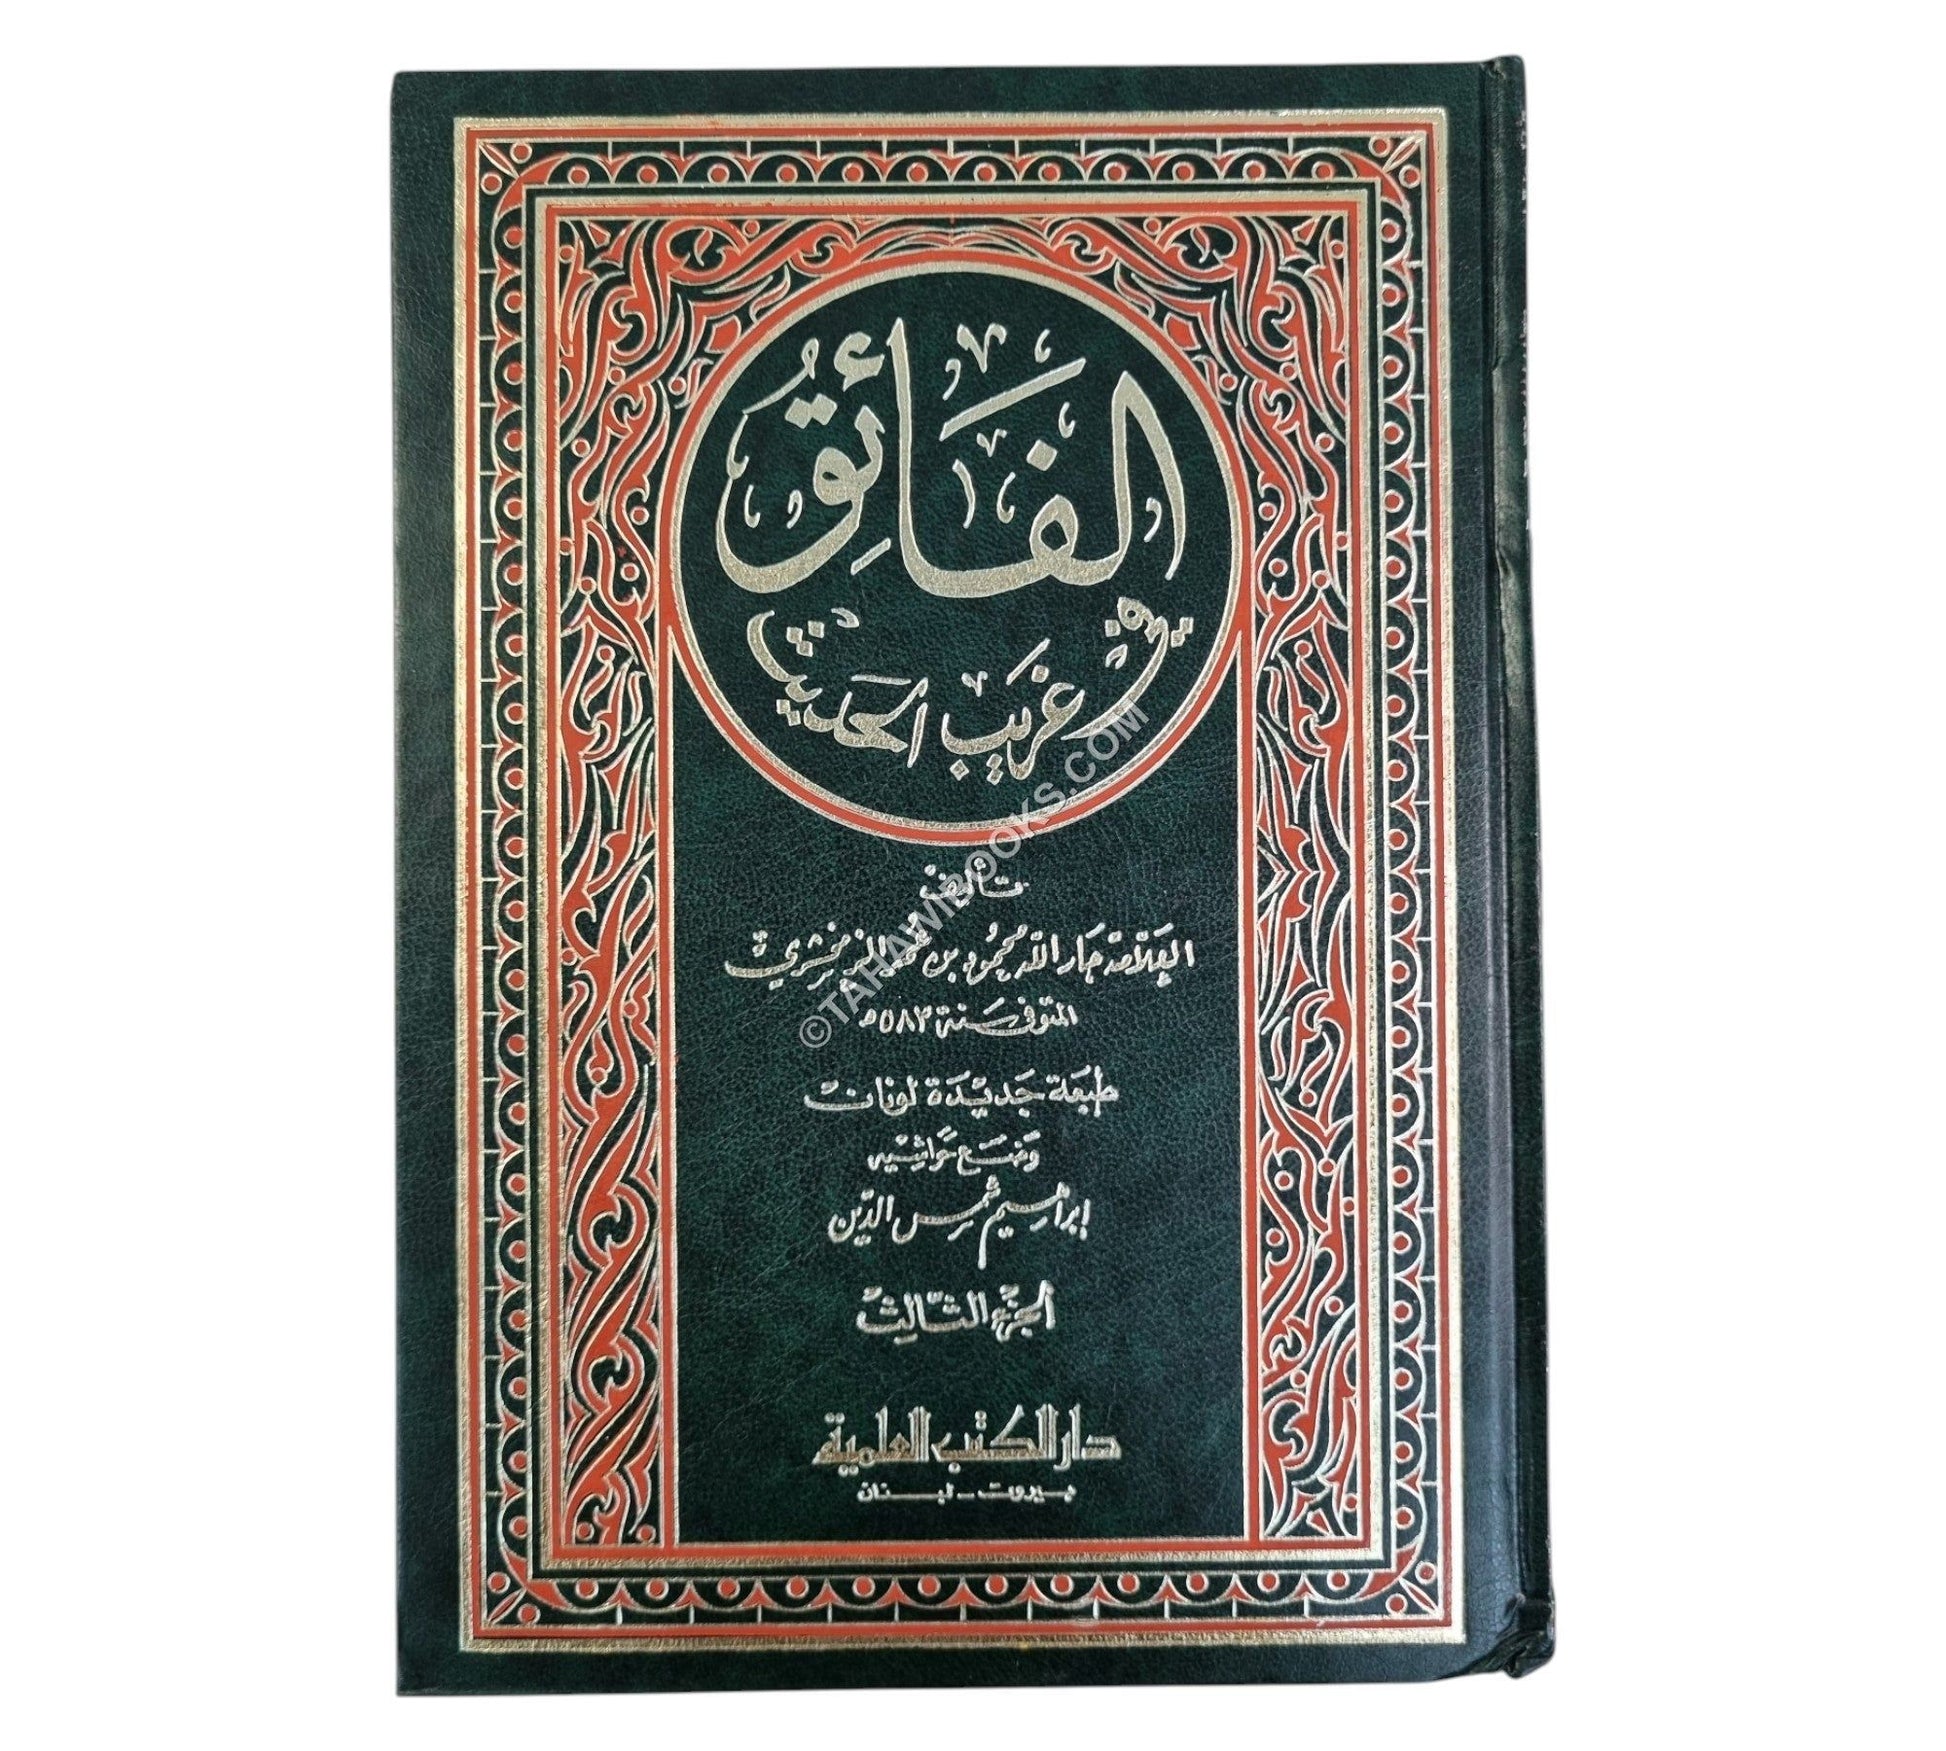 الفَائِقُ
في غَريبِ الحَديث
تأليف
العَلّامة جَار اللّه محمُود بن محمّد الزمخشري
المتوفى سَنة ٥٨٣ ه
طبعَة جَديْدَة لونان
وضَع حَواشيه
إبراهيم شمس الدّين
الجزء الثّالِث
دار الكتب العلمية
بيروت - لبنان
©TAHAWIBOOKS.COM